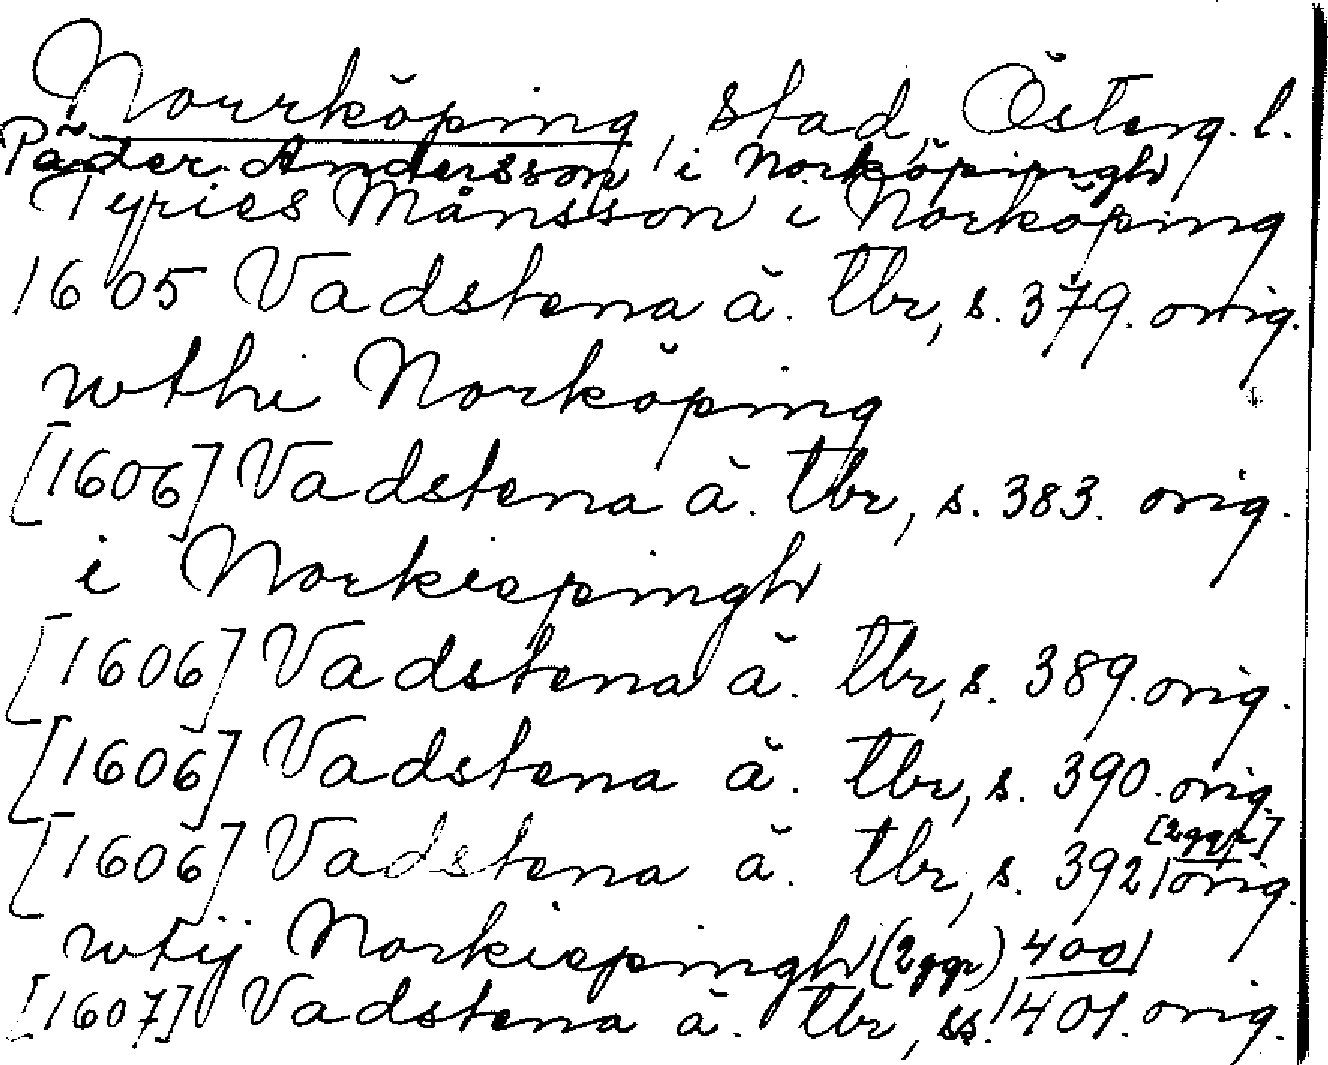 Norrköping, stad, Österg. l.
Päder Andersson i Norköpingh
Tyries Månsson i Norköping
1605 Vadstena ä. tbr, s. 379. orig.
wthi Norköping
[1606] Vadstena ä. tbr, s. 383. orig.
i Norkiepingh
[1606] Vadstena ä. tbr, s. 389. orig.
[1606] Vadstena ä. tbr, s. 390. orig.
[1606] Vadstena ä. tbr, s. 392 [2ggr] orig.
wtij Norkiepingh (2ggr) 400
[1607] Vadstena ä. tbr, ss. 401. orig.